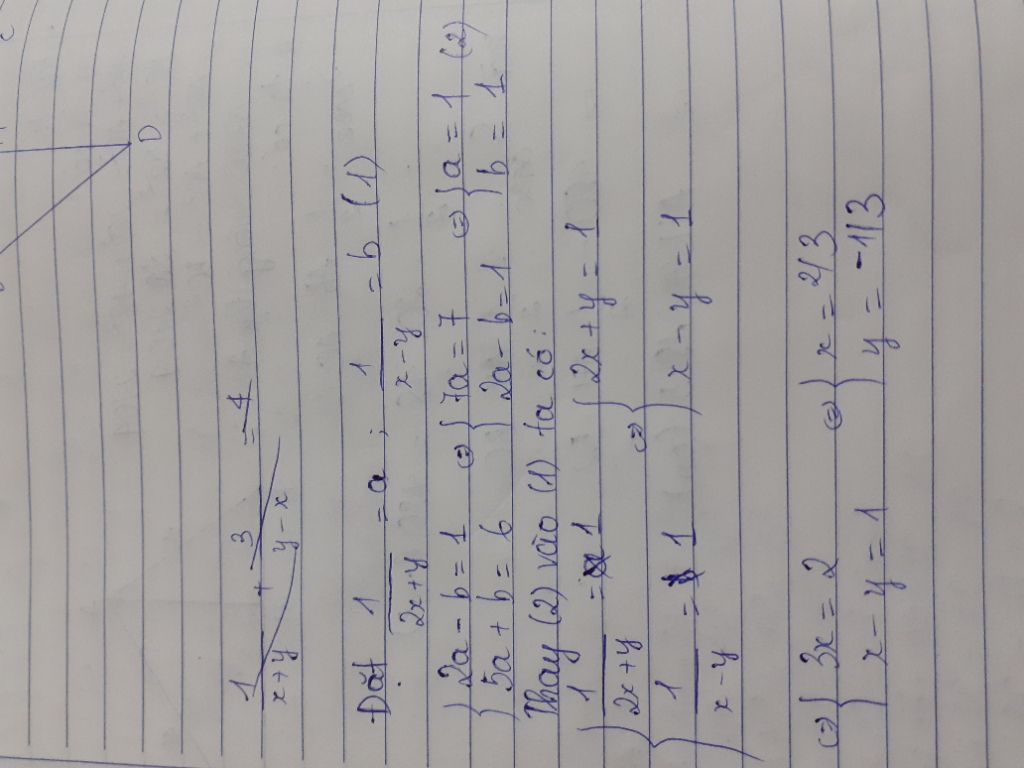 C
D
1/(x+y) + 3/(y-x) = 4
Đặt 1/(2x+y) = a ; 1/(x-y) = b (1)
{ 2a - b = 1 ⇔ { 7a = 7 ⇔ { a = 1 (2)
{ 5a + b = 6 { 2a - b = 1 { b = 1
Thay (2) vào (1) ta có:
{ 1/(2x+y) = 1 ⇔ { 2x + y = 1
{ 1/(x-y) = 1 { x - y = 1
⇔ { 3x = 2 ⇔ { x = 2/3
{ x - y = 1 { y = -1/3